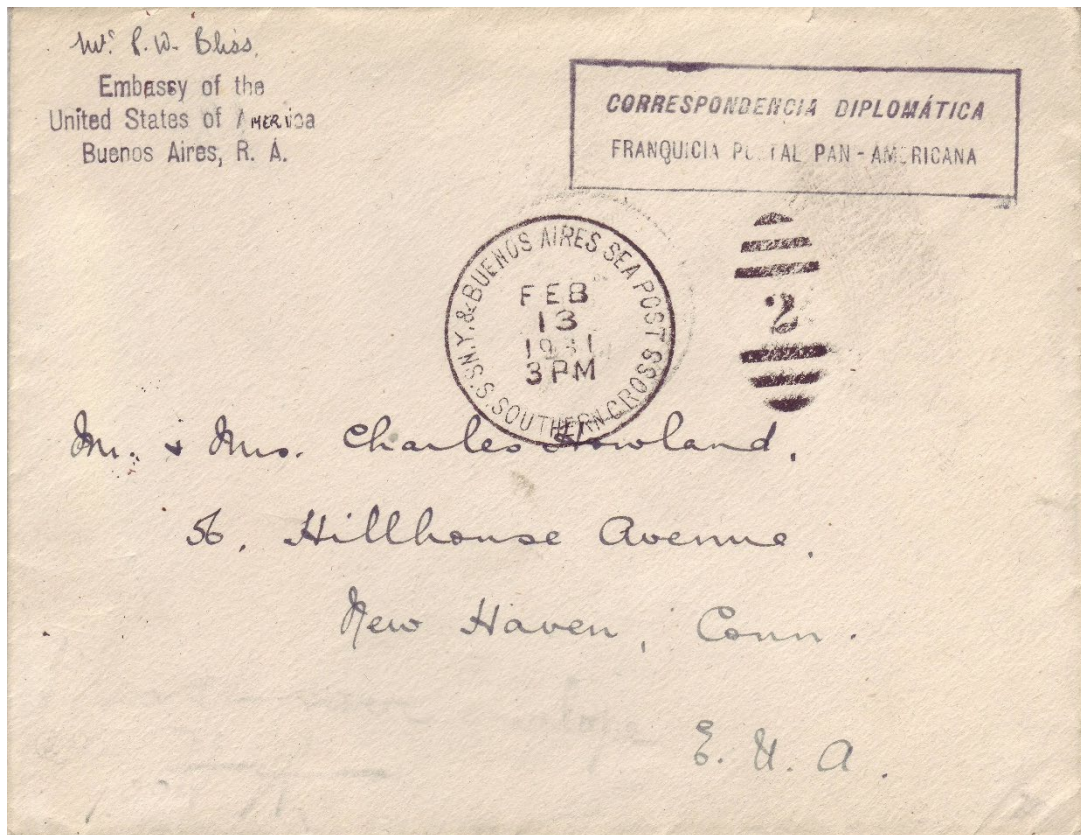 Mrs. R. W. Bliss.
Embassy of the
United States of America
Buenos Aires, R. A.
CORRESPONDENCIA DIPLOMÁTICA
FRANQUICIA POSTAL PAN-AMERICANA
N.Y. & BUENOS AIRES SEA POST SS
S.S. SOUTHERN CROSS
FEB
13
1931
3 PM
2
Mr. & Mrs. Charles Howland,
56, Hillhouse Avenue,
New Haven, Conn.
E. U. A.